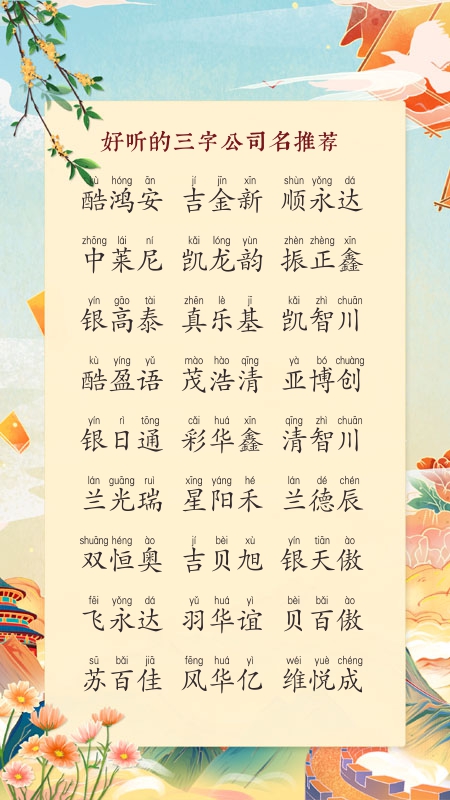 好听的三字公司名推荐
kù hóng ān jí jīn xīn shùn yǒng dá
酷鸿安 吉金新 顺永达
zhōng lái ní kǎi lóng yùn zhèn zhèng xīn
中莱尼 凯龙韵 振正鑫
yín gāo tài zhēn lè jī kǎi zhì chuān
银高泰 真乐基 凯智川
kù yíng yǔ mào hào qīng yà bó chuàng
酷盈语 茂浩清 亚博创
yín rì tōng cǎi huá xīn qīng zhì chuān
银日通 彩华鑫 清智川
lán guāng ruì xīng yáng hé lán dé chén
兰光瑞 星阳禾 兰德辰
shuāng héng ào jí bèi xù yín tiān ào
双恒奥 吉贝旭 银天傲
fēi yǒng dá yǔ huá yì bèi bǎi ào
飞永达 羽华谊 贝百傲
sū bǎi jiā fēng huá yì wéi yuè chéng
苏百佳 风华亿 维悦成